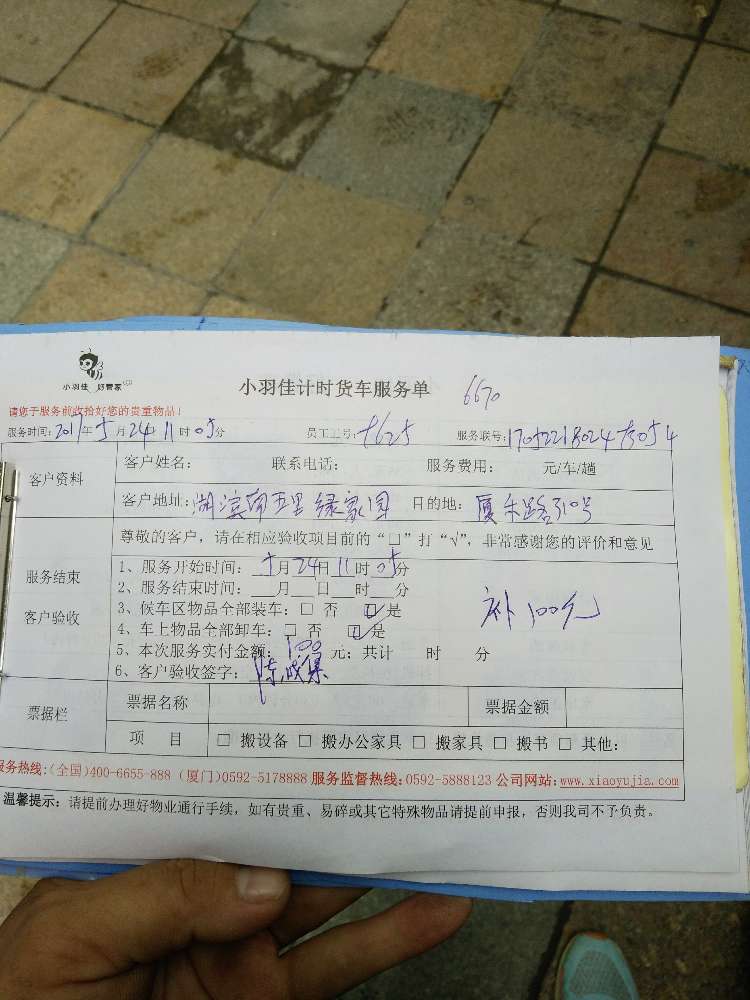 小羽佳 好管家
小羽佳计时货车服务单 6670
请您于服务前收拾好您的贵重物品!
服务时间:2017年5月24日11时05分 员工工号: 服务联号:
客户资料
客户姓名: 联系电话: 服务费用: 元/车/趟
客户地址:湖滨南五里绿家园 目的地:厦禾路310号
服务结束
客户验收
尊敬的客户,请在相应验收项目前的“□”打“√”,非常感谢您的评价和意见
1、服务开始时间: 5月24日11时05分
2、服务结束时间:__月__日__时__分
3、候车区物品全部装车:□ 否 ☑是
4、车上物品全部卸车:□ 否 ☑是
补100元
5、本次服务实付金额:100 元;共计 时 分
6、客户验收签字:
票据栏
票据名称 票据金额
项 目 □ 搬设备 □ 搬办公家具 □ 搬家具 □ 搬书 □ 其他:
服务热线:(全国)400-6655-888 (厦门)0592-5178888 服务监督热线:0592-5888123 公司网站:www.xiaoyujia.com
温馨提示:请提前办理好物业通行手续,如有贵重、易碎或其它特殊物品请提前申报,否则我司不予负责。